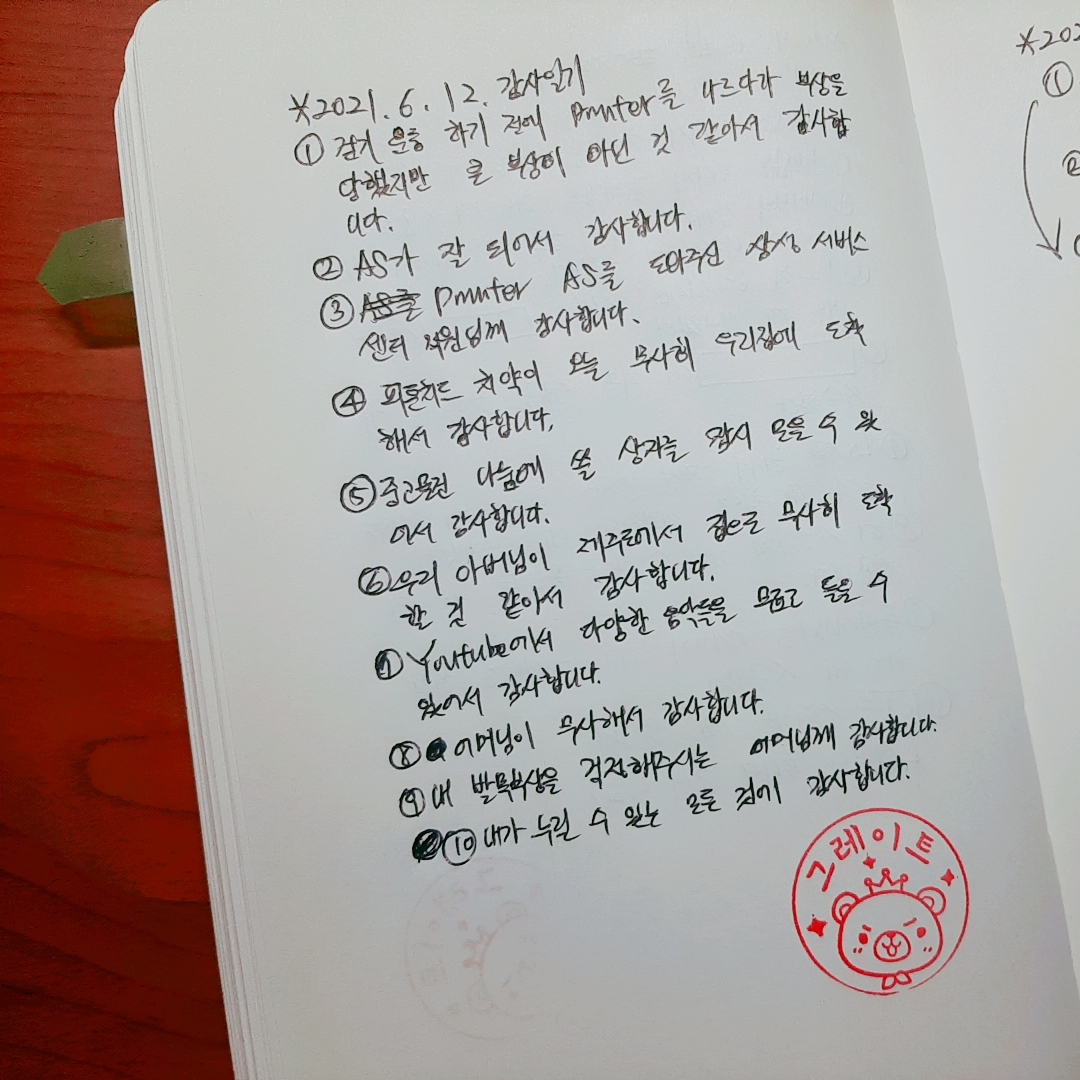 *2021. 6. 12. 감사일기
① 걷기 운동 하기 전에 Printer를 나르다가 부상을
당했지만 큰 부상이 아닌 것 같아서 감사합
니다.
② AS가 잘 되어서 감사합니다.
③ AS를 Printer AS를 도와주신 삼성 서비스
센터 직원님께 감사합니다.
④ 피톤치드 치약이 오늘 무사히 우리집에 도착
해서 감사합니다.
⑤ 중고물건 나눔에 쓸 상자를 잠시 모을 수 있
어서 감사합니다.
⑥ 우리 아버님이 제주도에서 집으로 무사히 도착
한 것 같아서 감사합니다.
⑦ Youtube에서 다양한 음악들을 무료로 들을 수
있어서 감사합니다.
⑧ 어머님이 무사해서 감사합니다.
⑨ 내 발목부상을 걱정해주시는 어머님께 감사합니다.
⑩ 내가 누릴 수 있는 모든 것에 감사합니다.
그레이트
*202
①
②